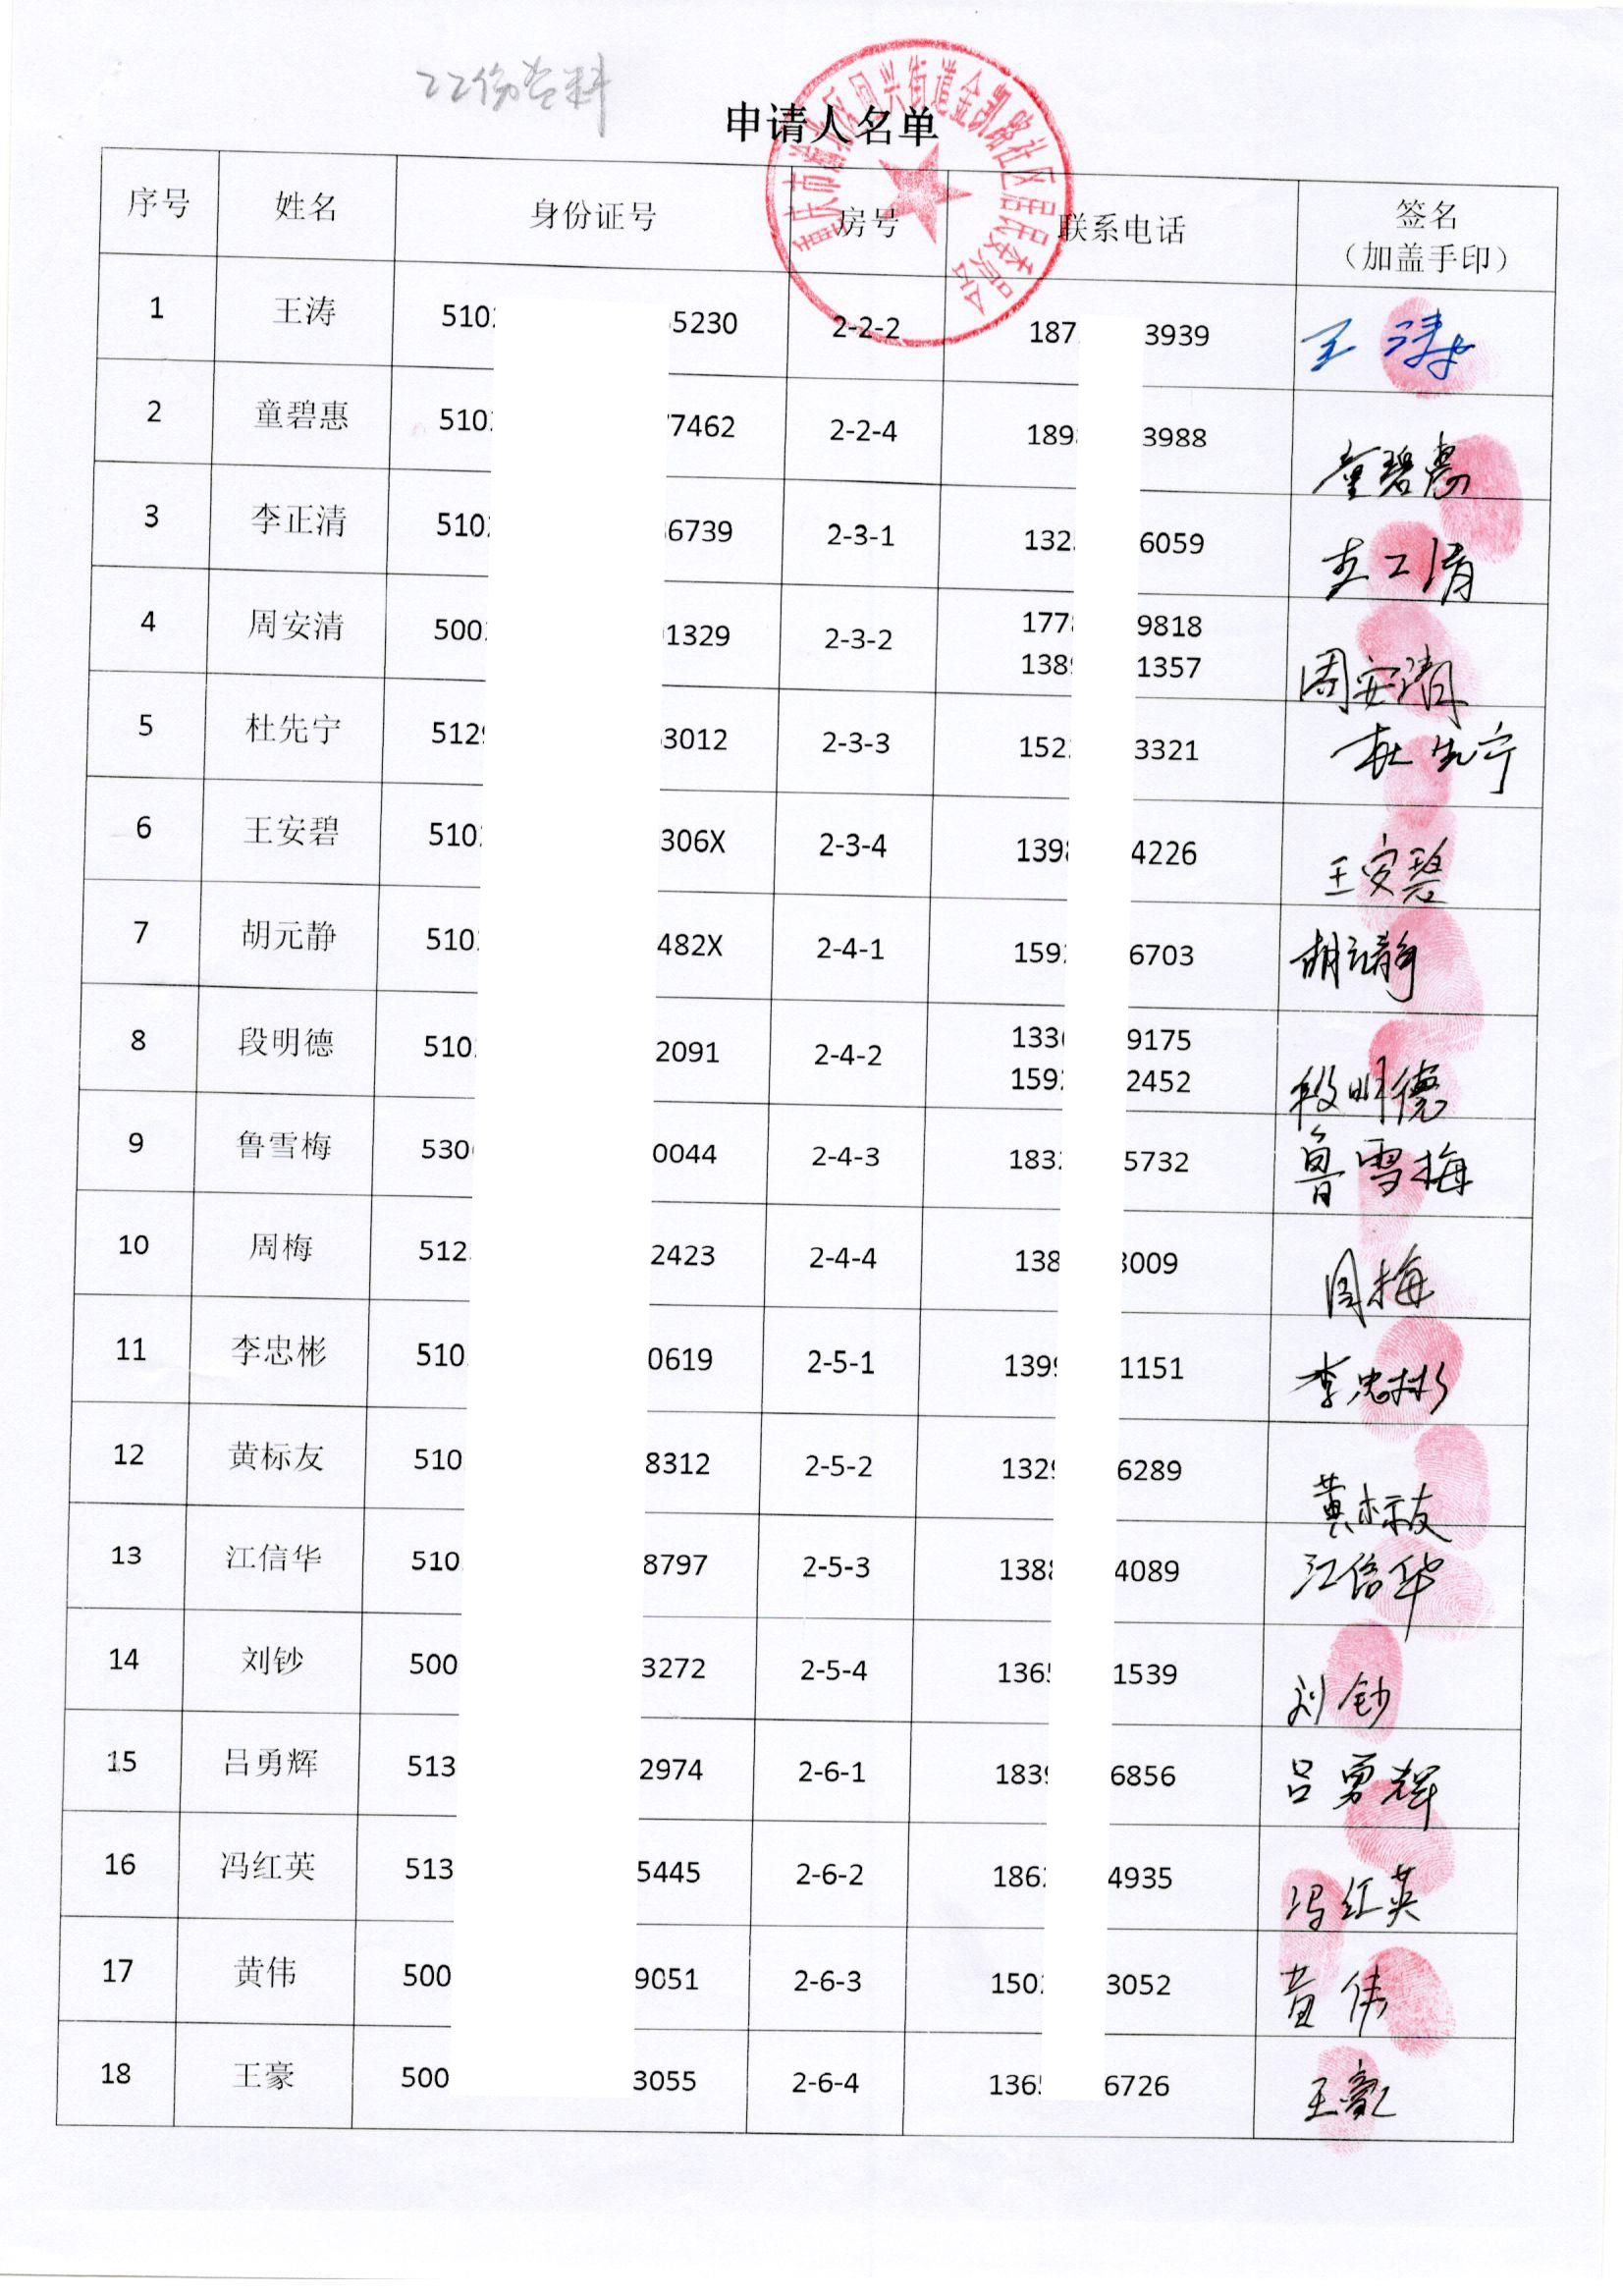 22份资料
申请人名单
重庆市渝北区回兴街道金凯路社区居民委员会
序号 姓名 身份证号 房号 联系电话 签名
（加盖手印）
1 王涛 510 5230 2-2-2 187 3939 王涛
2 童碧惠 510 7462 2-2-4 189 3988 童碧惠
3 李正清 510 6739 2-3-1 132 6059 李正清
4 周安清 500 1329 2-3-2 177 9818 周安清
138 1357
5 杜先宁 512 3012 2-3-3 152 3321 杜先宁
6 王安碧 510 306X 2-3-4 139 4226 王安碧
7 胡元静 510 482X 2-4-1 159 6703 胡元静
8 段明德 510 2091 2-4-2 133 9175 段明德
159 2452
9 鲁雪梅 530 0044 2-4-3 183 5732 鲁雪梅
10 周梅 512 2423 2-4-4 138 3009 周梅
11 李忠彬 510 0619 2-5-1 139 1151 李忠彬
12 黄标友 510 8312 2-5-2 132 6289 黄标友
13 江信华 510 8797 2-5-3 138 4089 江信华
14 刘钞 500 3272 2-5-4 136 1539 刘钞
15 吕勇辉 513 2974 2-6-1 183 6856 吕勇辉
16 冯红英 513 5445 2-6-2 186 4935 冯红英
17 黄伟 500 9051 2-6-3 150 3052 黄伟
18 王豪 500 3055 2-6-4 136 6726 王豪